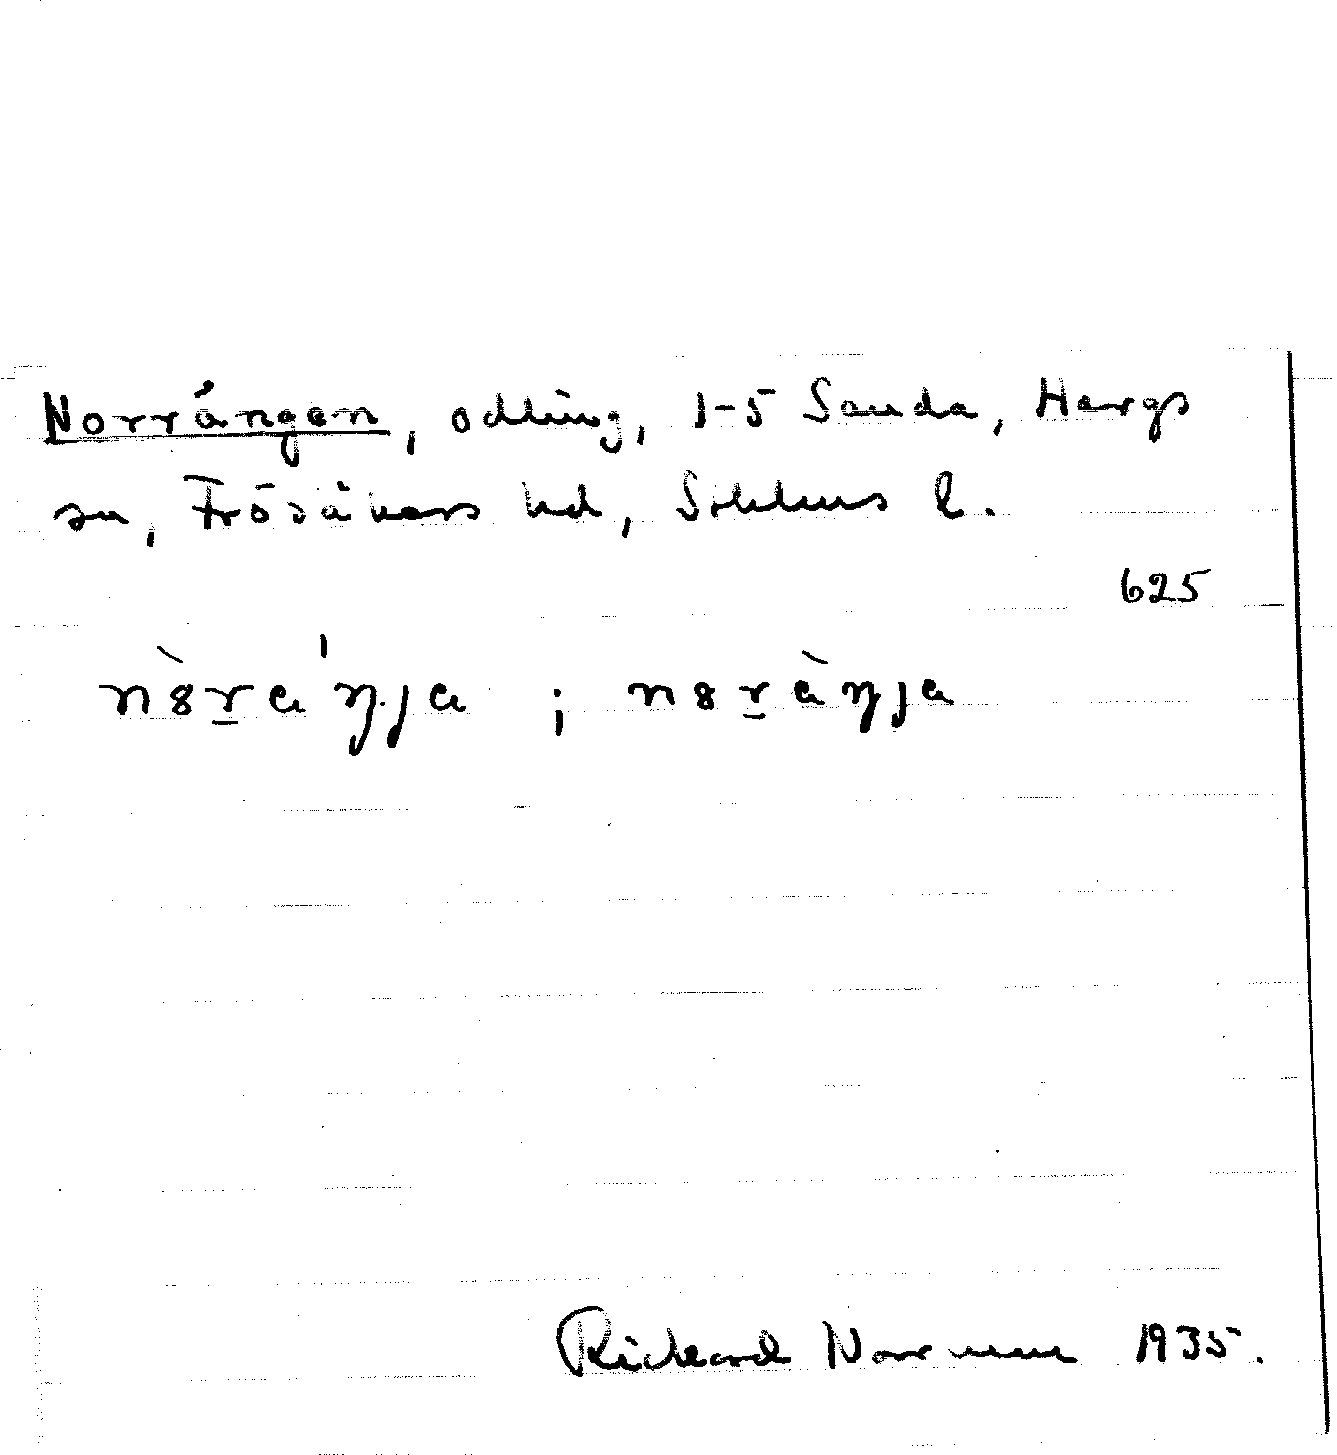 Norrängen, odling, 1-5 Sanda, Hargs
sn, Frösåkers hd, Sthlms l.
625
nòra'ŋ.ja ; noràŋja
Rickard Norrman 1935.